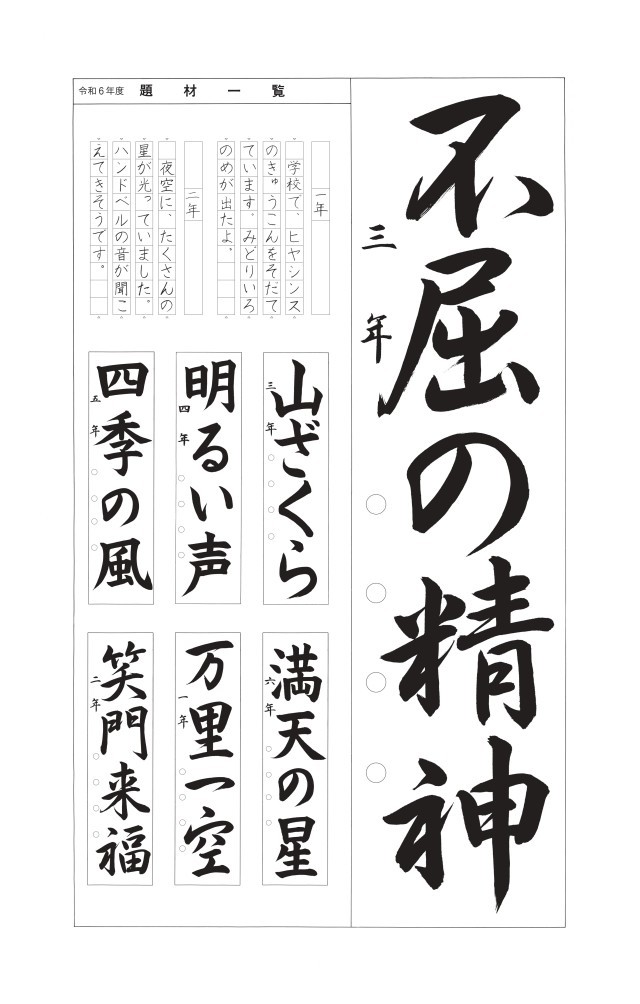 令和６年度　題材一覧
不屈の精神
三年○○○○
一年
　学校で、ヒヤシンス
のきゅうこんをそだて
ています。みどりいろ
のめが出たよ。
二年
　夜空に、たくさんの
星が光っていました。
ハンドベルの音が聞こ
えてきそうです。
山ざくら
三年○○○○
明るい声
四年○○○○
四季の風
五年○○○○
満天の星
六年○○○○
万里一空
一年○○○○
笑門来福
二年○○○○